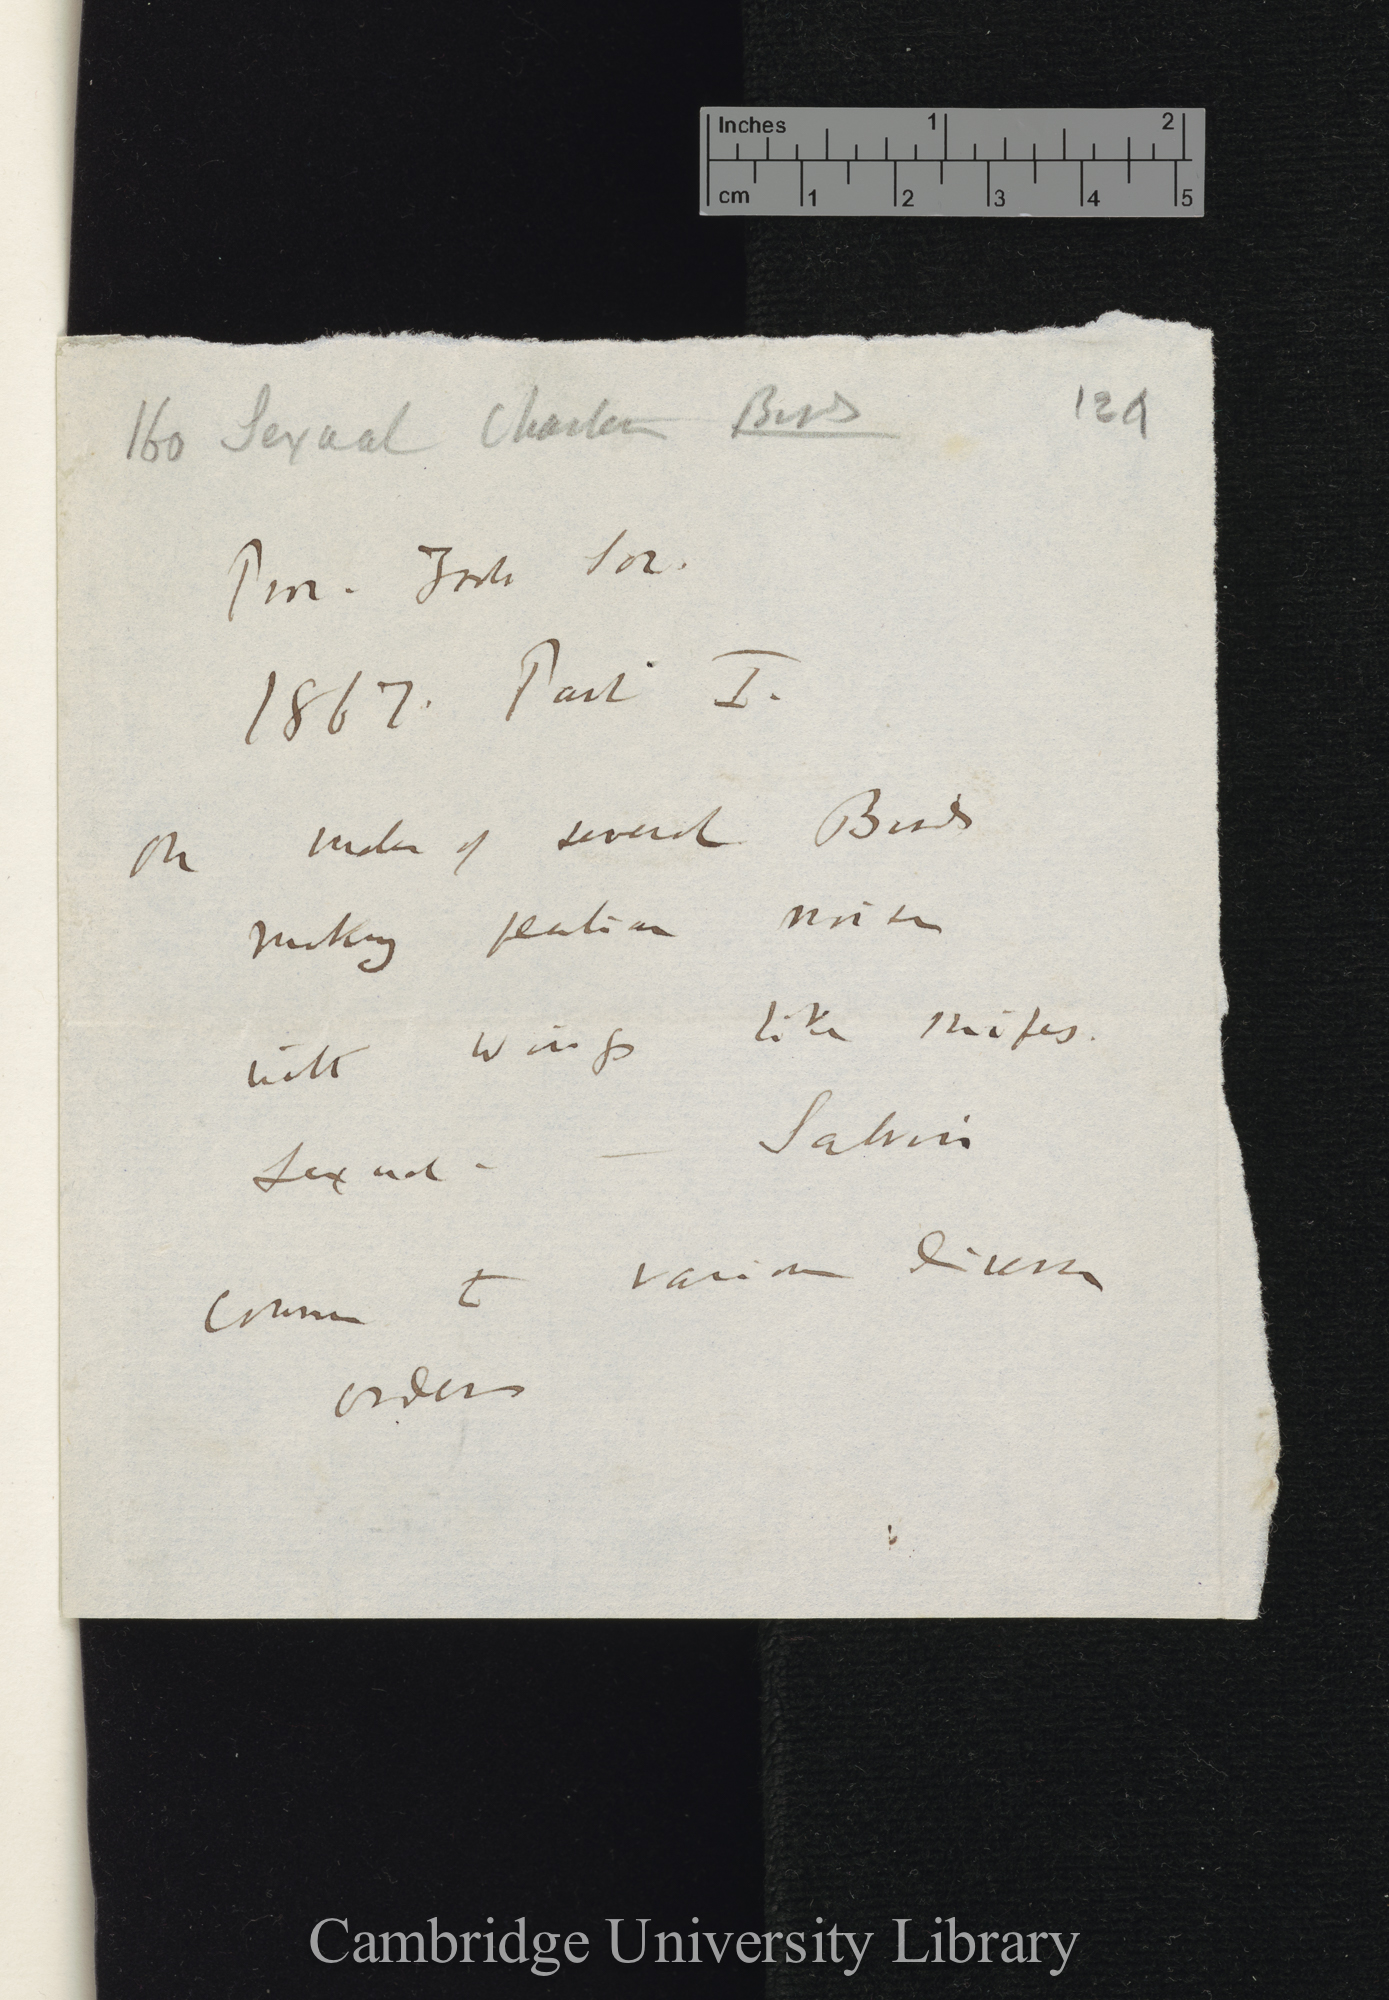 Inches 1 2
cm 1 2 3 4 5
160 Sexual Character Birds 129
Proc. Zool. Soc.
1867. Part I.
On males of several Birds
making peculiar noises
with wings like snipes.
Sexual – — Salvin
Common to various diverse
orders
Cambridge University Library